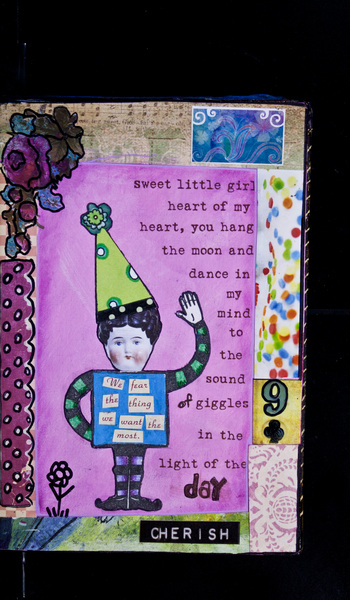 sweet little girl
heart of my
heart, you hang
the moon and
dance in
my
mind
to
the
sound
of giggles
in the
light of the
day
We fear
the thing
we want the
most.
9
CHERISH